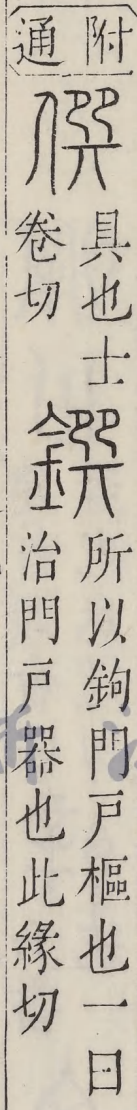 附通
僎
具也士
卷切
鐉
所以鉤門戶樞也一曰
治門戶器也此緣切